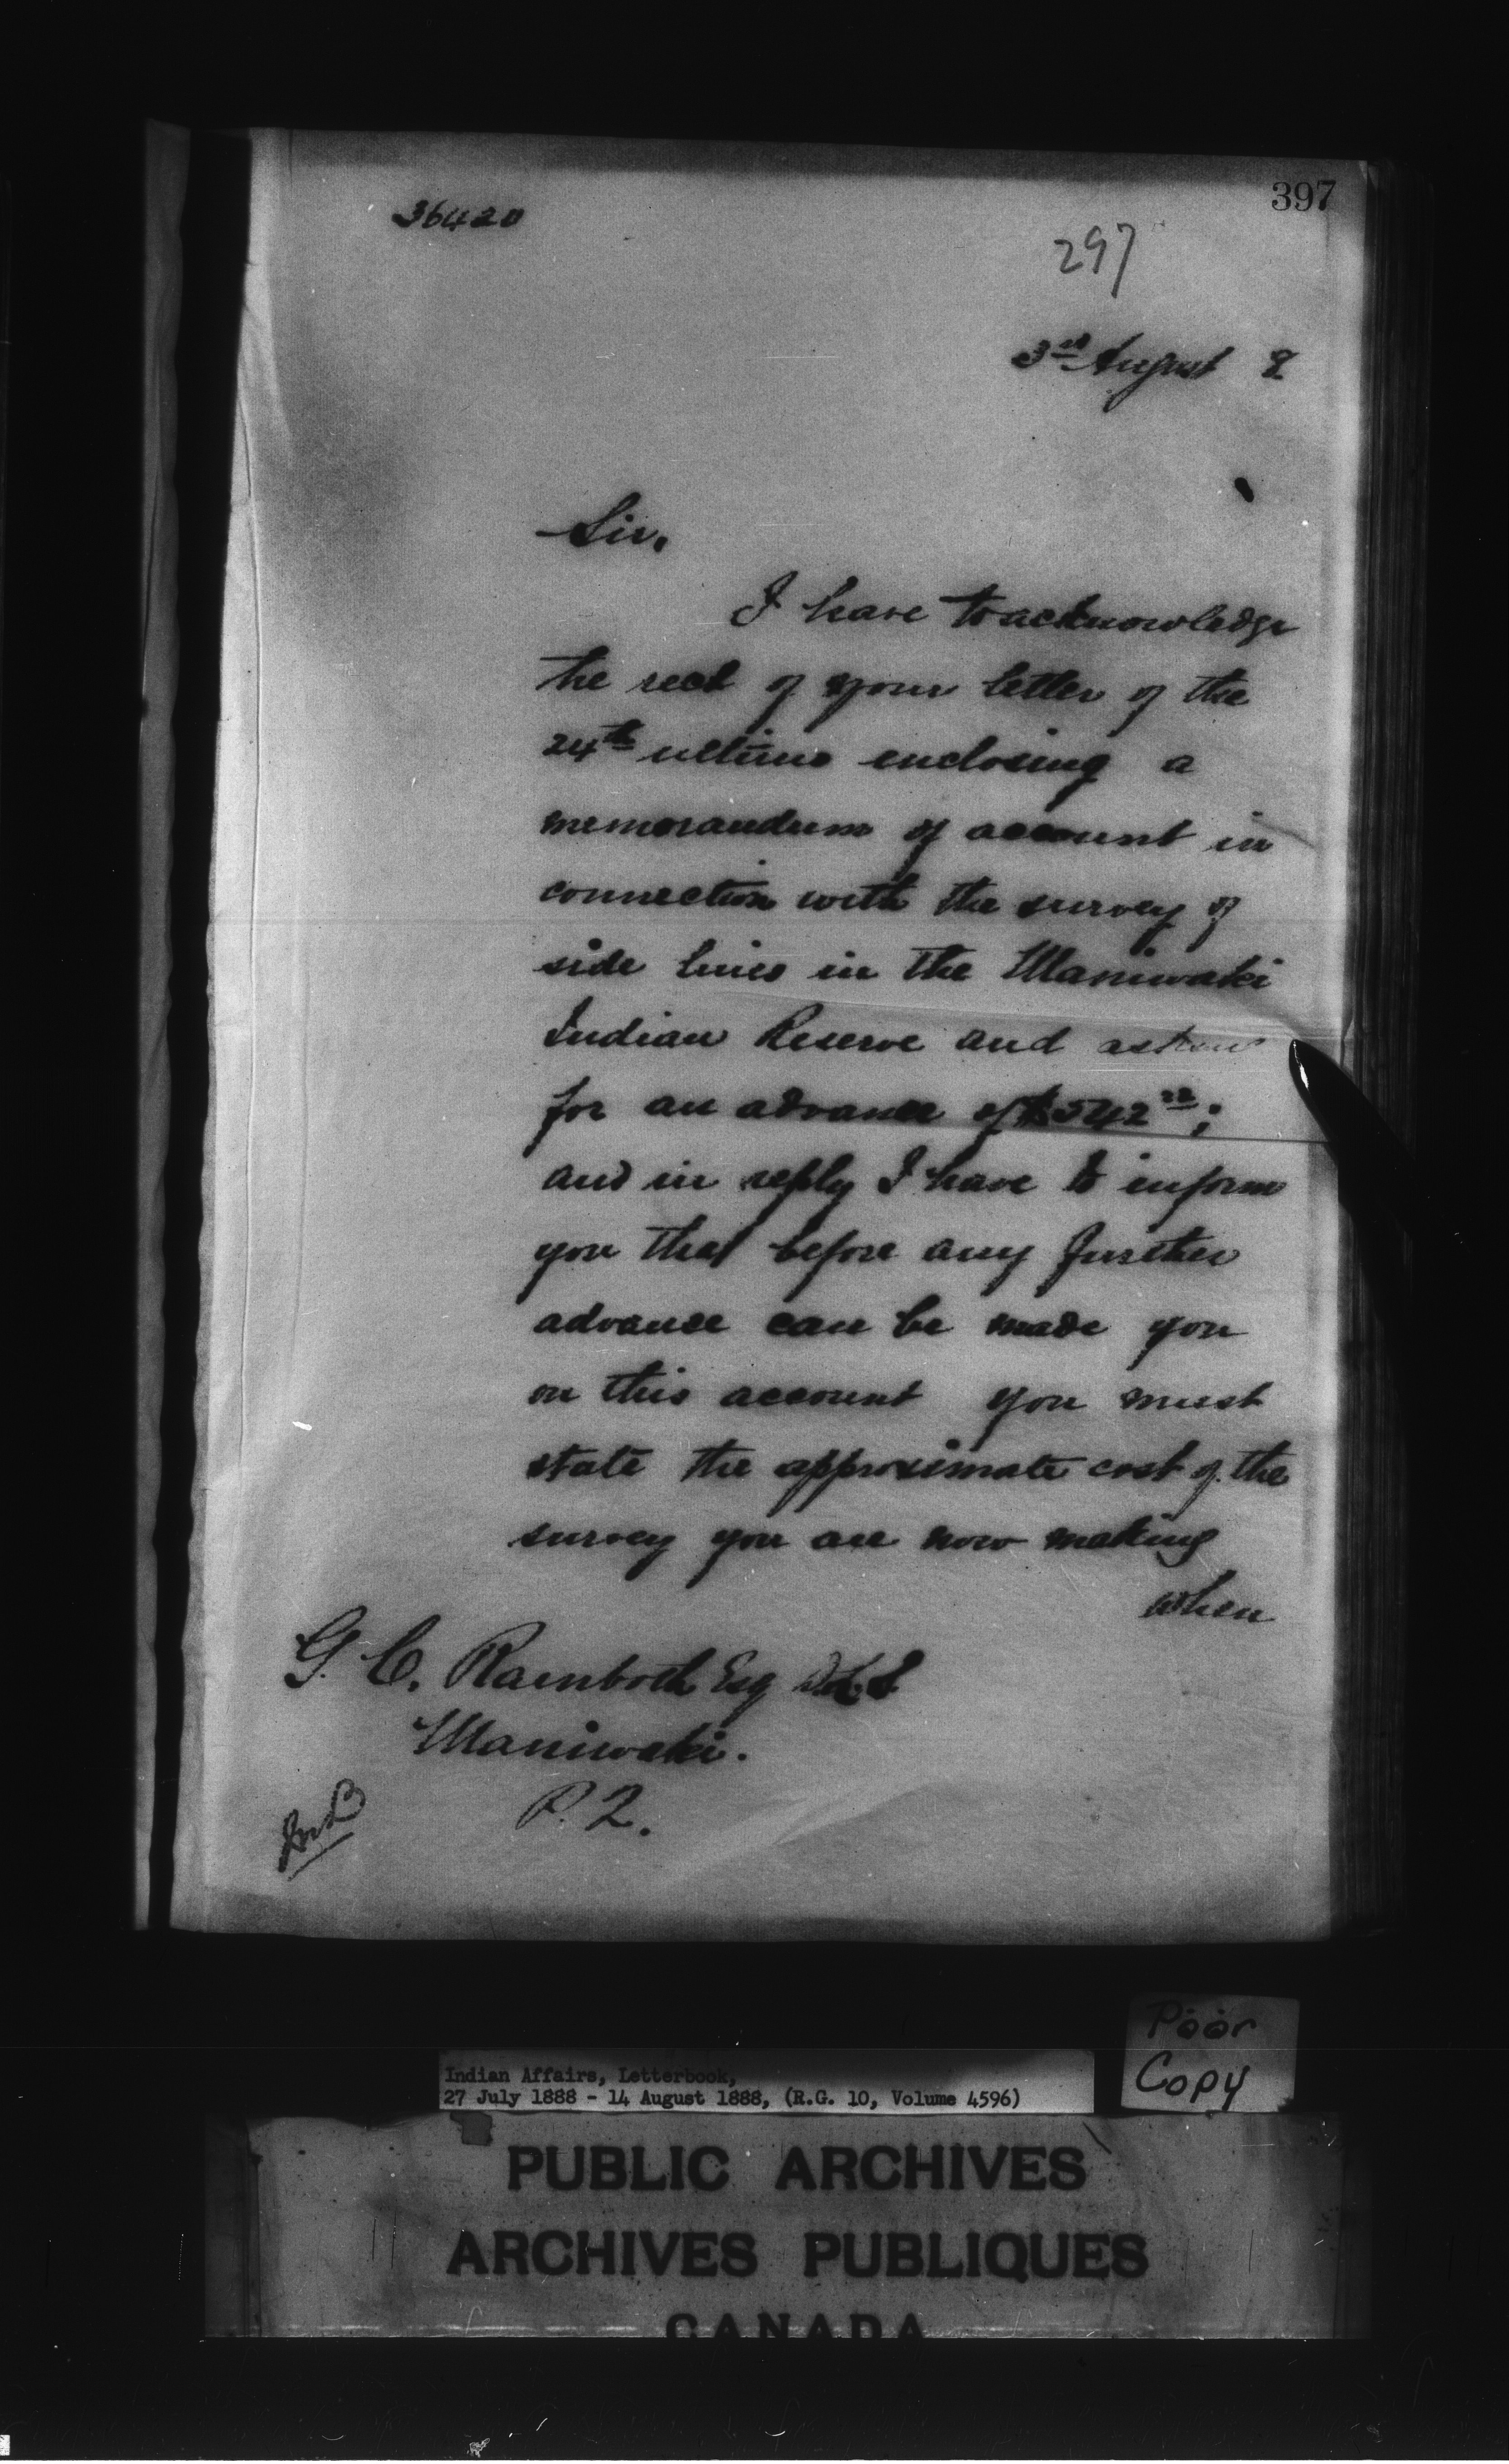 36420
397
297
3rd August 8
Sir,
I have to acknowledge
the rect of your letter of the
24th ultimo enclosing a
memorandum of account in
connection with the survey of
side lines in the Maniwaki
Indian Reserve and
for an advance of $542 22;
and in reply I have to inform
you that before any further
advance can be made you
on this account you must
state the approximate cost of the
survey you are now making
when
G. C. Rainboth Esq D.L.S.
Maniwaki.
P. Q.
Poor
Copy
Indian Affairs, Letterbook,
27 July 1888 - 14 August 1888, (R.G. 10, Volume 4596)
PUBLIC ARCHIVES
ARCHIVES PUBLIQUES
CANADA